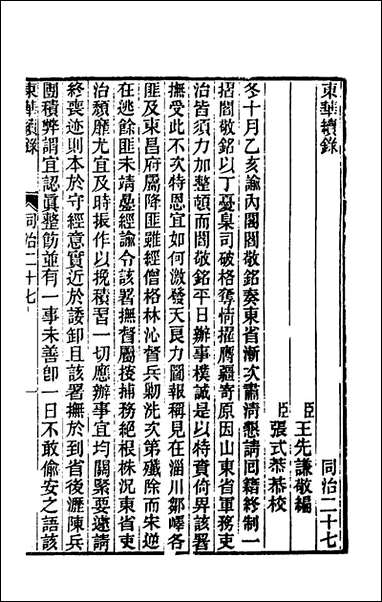 東華續錄
同治二十七
臣王先謙敬編
臣張式恭恭校
冬十月乙亥諭內閣閻敬銘奏東省漸次肅清懇請回籍終制一
摺閻敬銘以丁憂臬司破格奪情擢膺疆寄原因山東省軍務吏
治皆須力加整頓而閻敬銘平日辦事樸誠是以特賁倚畀該署
撫受此不次特恩宜如何激發天良力圖報稱見在淄川鄒嶧各
匪及東昌府屬降匪雖經僧格林沁督兵剿洗次第殲除而朱逆
在逃餘匪未靖疊經諭令該署撫督屬搜捕務絕根株況東省吏
治頹靡尤宜及時振作以挽積習一切應辦事宜均關緊要遽請
終喪迹則本於守經意實近於諉卸且該署撫於到省後瀝陳兵
團積弊謂宜認眞整飭並有一事未善卽一日不敢偷安之語該
東華續錄
同治二十七
一